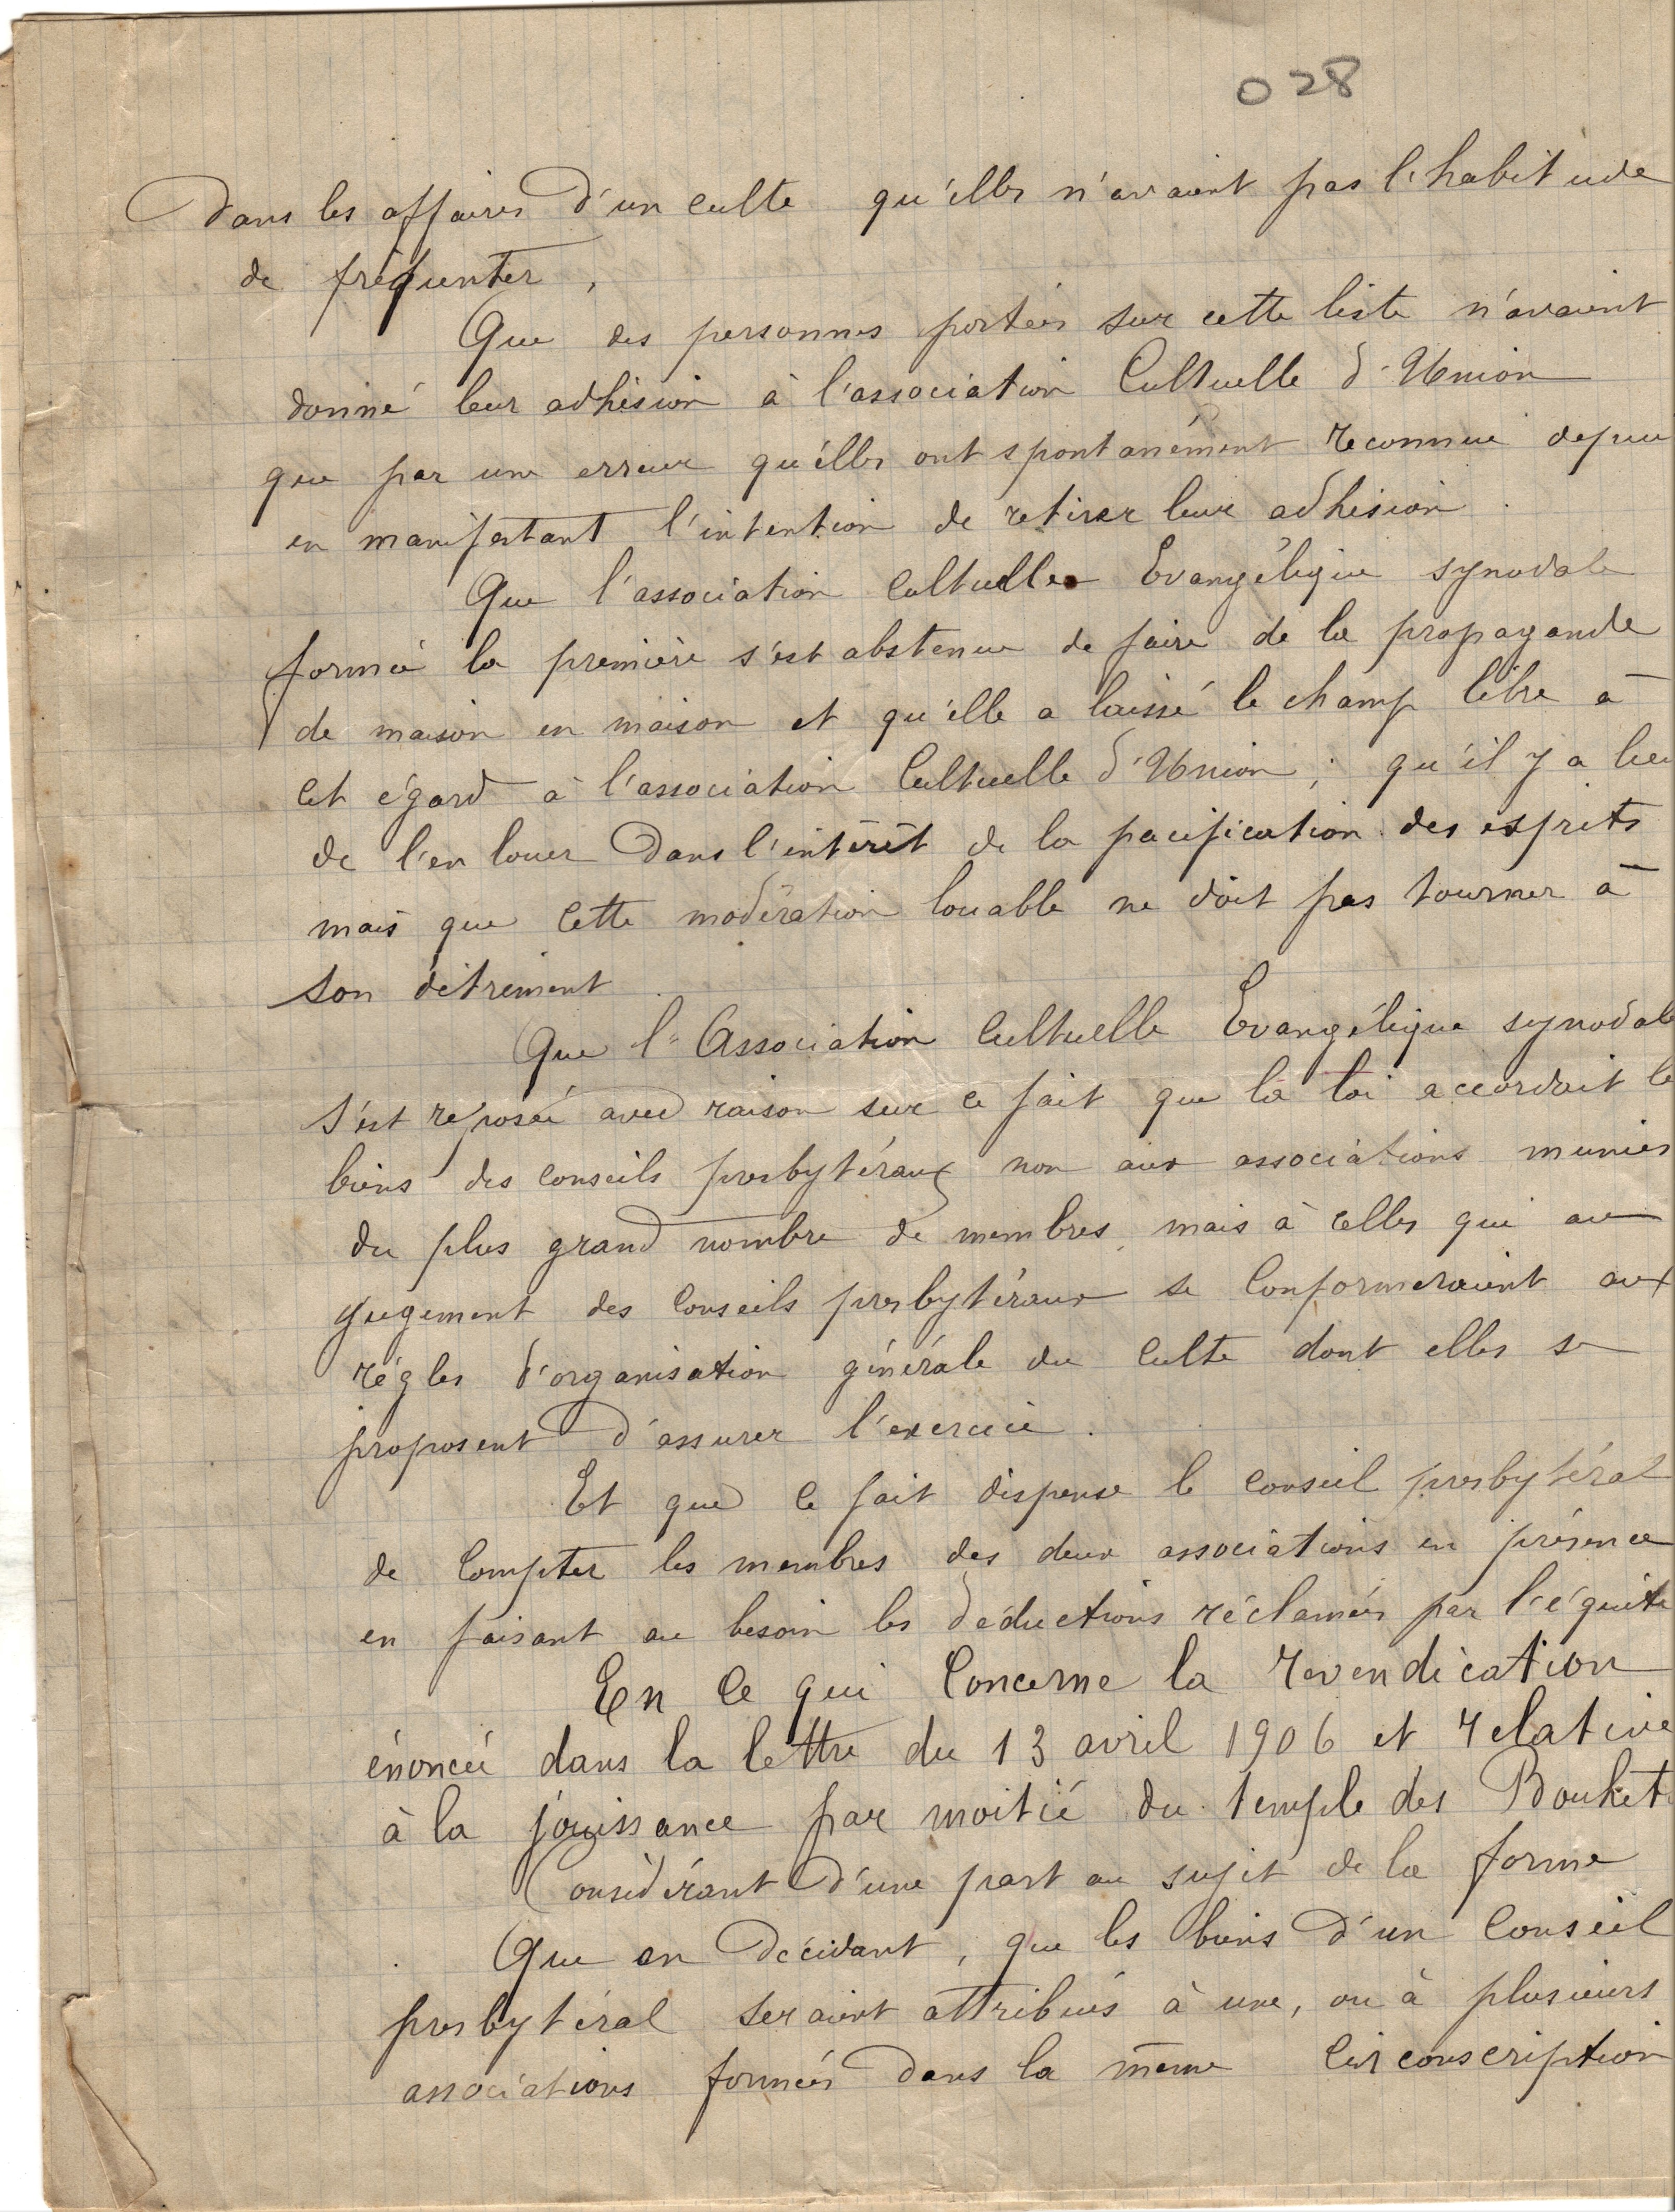 028
dans les affaires d'un culte qu'elles n'avaient pas l'habitude
de fréquenter,
Que des personnes portées sur cette liste n'avaient
donné leur adhésion à l'association Cultuelle d'Union
que par une erreur qu'elles ont spontanément reconnue depuis
en manifestant l'intention de retirer leur adhésion.
Que l'association Cultuelle Evangélique synodale
formée la première s'est abstenue de faire de la propagande
de maison en maison et qu'elle a laissé le champ libre à
cet égard à l'association Cultuelle d'Union ; qu'il y a lieu
de l'en louer dans l'intérêt de la pacification des esprits
mais que cette modération louable ne doit pas tourner à
son détriment.
Que l'Association Cultuelle Evangélique synodale
s'est reposée avec raison sur ce fait que la loi accordait le
biens des conseils presbytéraux non aux associations munies
du plus grand nombre de membres, mais à celles qui au
jugement des Conseils presbytéraux se conformeraient aux
régles d'organisation générale du culte dont elles se
proposent d'assurer l'exercice.
Et que ce fait dispense le conseil presbytéral
de compter les membres des deux associations en présence
en faisant au besoin les déductions réclamées par l'équité
En ce qui concerne la revendication
énoncée dans la lettre du 13 avril 1906 et relative
à la jouissance par moitié du temple des Bouket
Considérant d'une part au sujet de la forme
Que en décidant, que les biens d'un Conseil
presbytéral seraient attribués à une, ou à plusieurs
associations formées dans la même circonscription